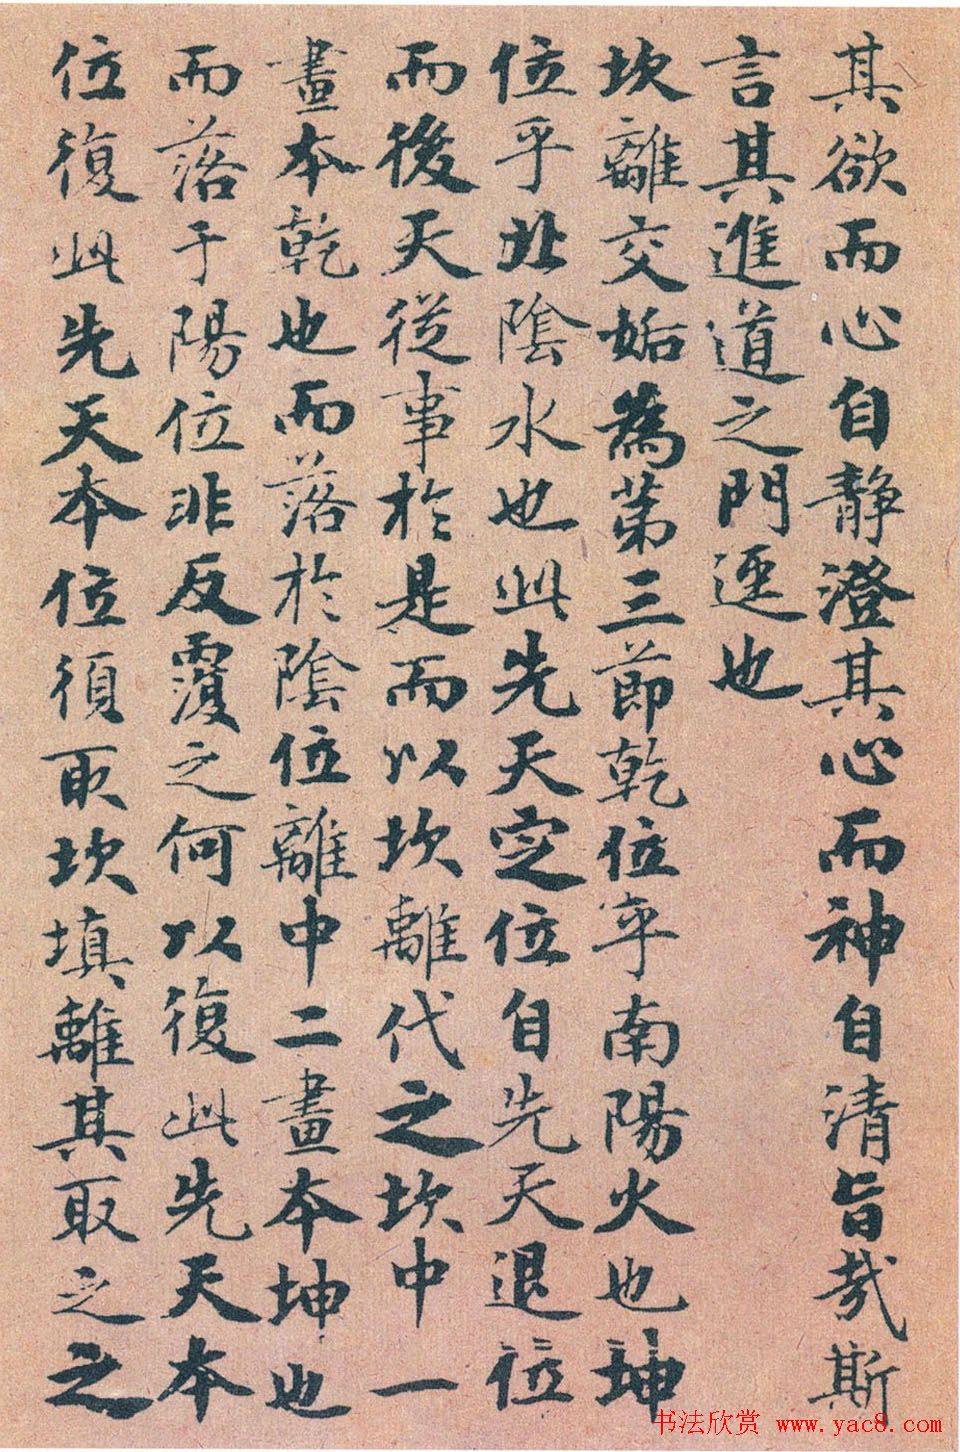 其欲而心自静澄其心而神自清旨哉斯
言其進道之門逕也
坎離交姤為第三節乾位乎南陽火也坤
位乎北陰水也此先天定位自先天退位
而後天從事於是而以坎離代之坎中一
畫本乾也而落於陰位離中二畫本坤也
而落于陽位非反覆之何以復此先天本
位復此先天本位須取坎填離其取之之
书法欣赏 www.yac8.com